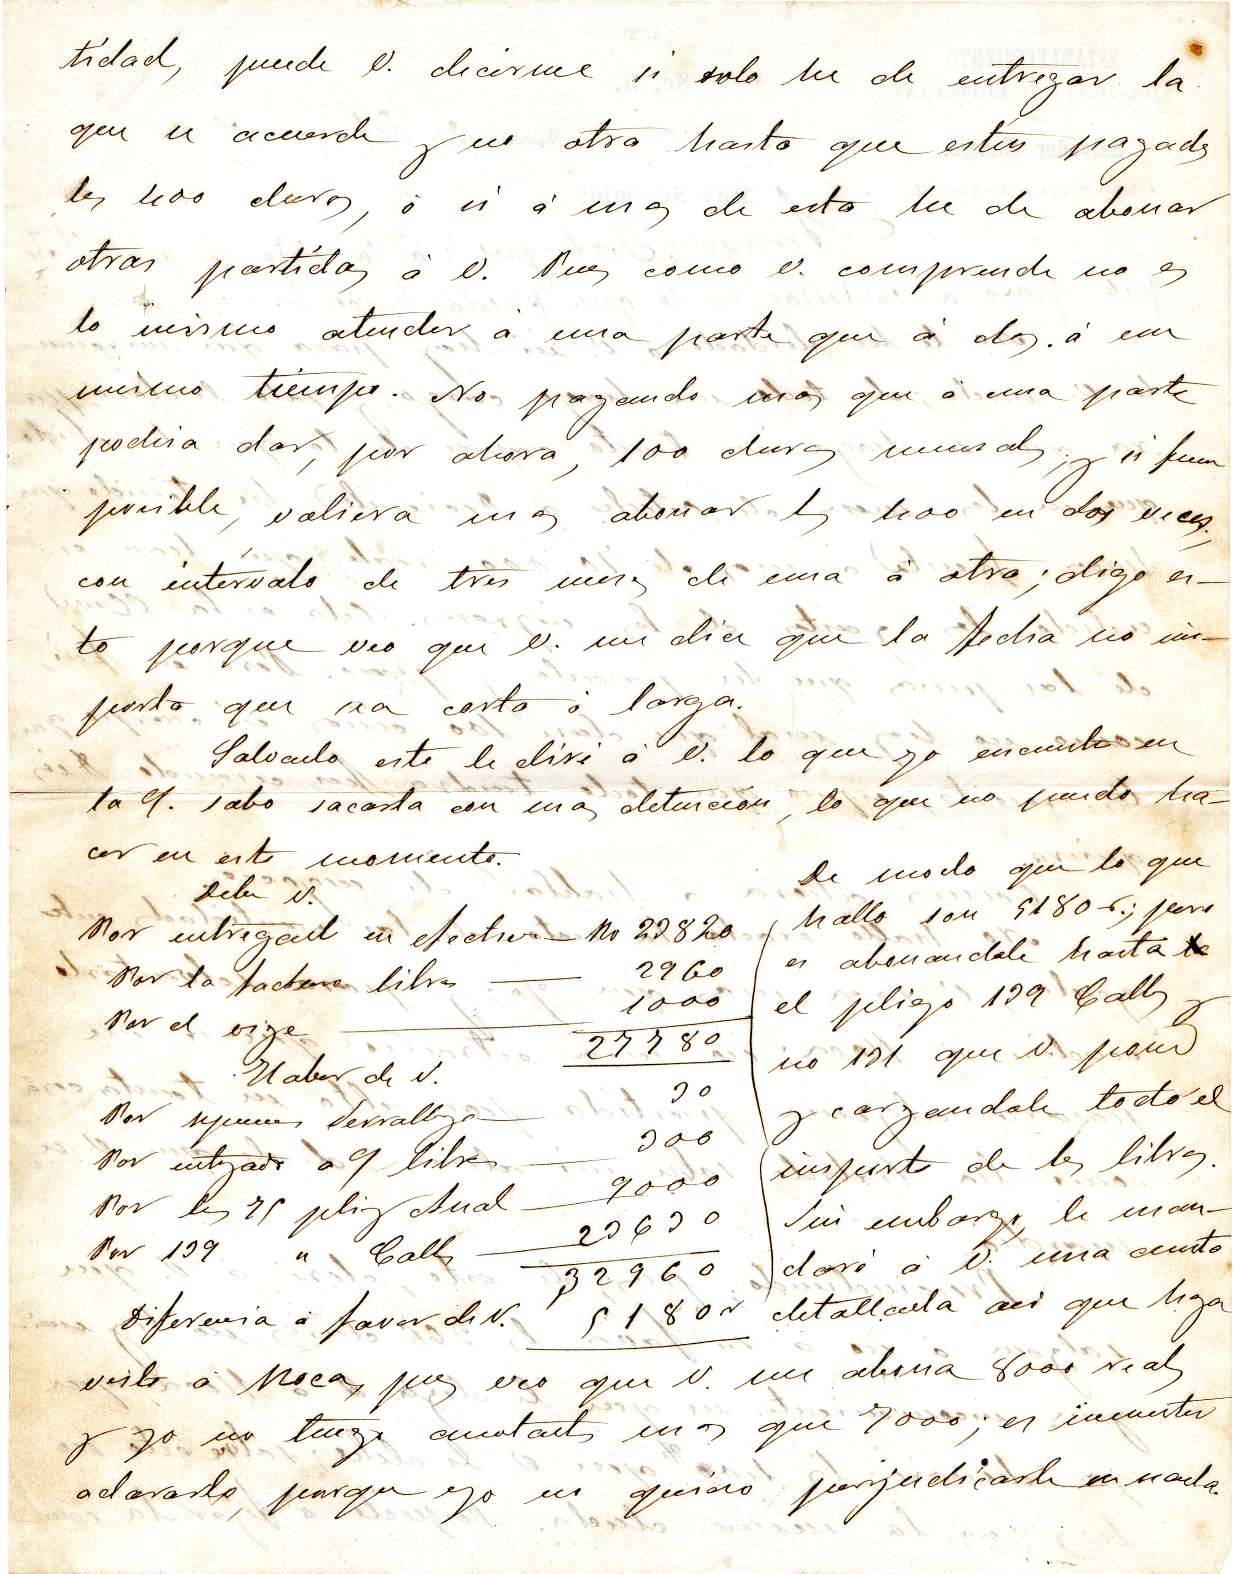 tidad, puede V. decirme si solo he de entregar la
que se acuerde y no otra hasta que esten pagados
los 400 duros, ó si á mas de esto he de abonar
otras partidas á V. Pues como V. comprende no es
lo mismo atender á una parte que á dos á un
mismo tiempo. No pagando mas que á una parte
podria dar, por ahora, 100 duros mensuales, y si fuera
posible, valiera mas abonar los 400 en dos veces,
con intérvalo de tres meses de una á otra; digo es-
to porque veo que V. me dice que la fecha no im-
porta que sea corta ó larga.
Salvando esto le diré á V. lo que yo encuentro en
la q. sabo sacarla con mas detencion, lo que no puedo ha-
cer en este momento.
Debe V.
Por entregado en efectivo — 23820
Por la factura libros — 2960
Por el viage — 1000
27780
Haber de V.
Por Serrallonga — 30
Por entregado a libros — 300
Por los 75 pliegos Anal — 9000
Por 139 " Calls — 23630
32960
Diferencia á favor de V. 5180 r
De modo que lo que
hallo son 5180 r.; pero
es abonandole hasta
el pliego 139 Calls y
no 131 que V. pone
y cargandole todo el
importe de los libros.
Sin embargo, le man-
daré á V. una cuenta
detallada asi que haga
visto á Roca, pues veo que V. me abona 8000 reales
y yo no tengo anotados mas que 7000; es menester
aclararlo, porque yo no quiero perjudicarle en nada.